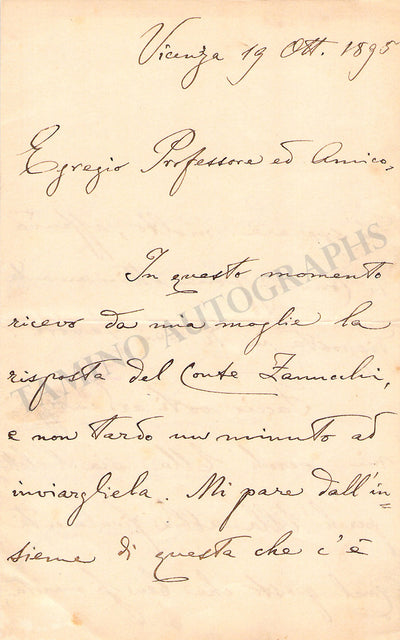 Vicenza 19 Ott. 1895
Egregio Professore ed Amico,
In questo momento
ricevo da mia moglie la
risposta del Conte Zannchi,
e non tardo un minuto ad
inviargliela. Mi pare dall'in=
sieme di questa che c'è
TAMINO AUTOGRAPHS